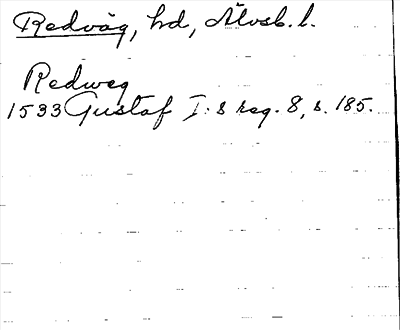 Redväg, hd, Älvsb. l.
Redweg
1533 Gustaf I:s reg. 8, s. 185.